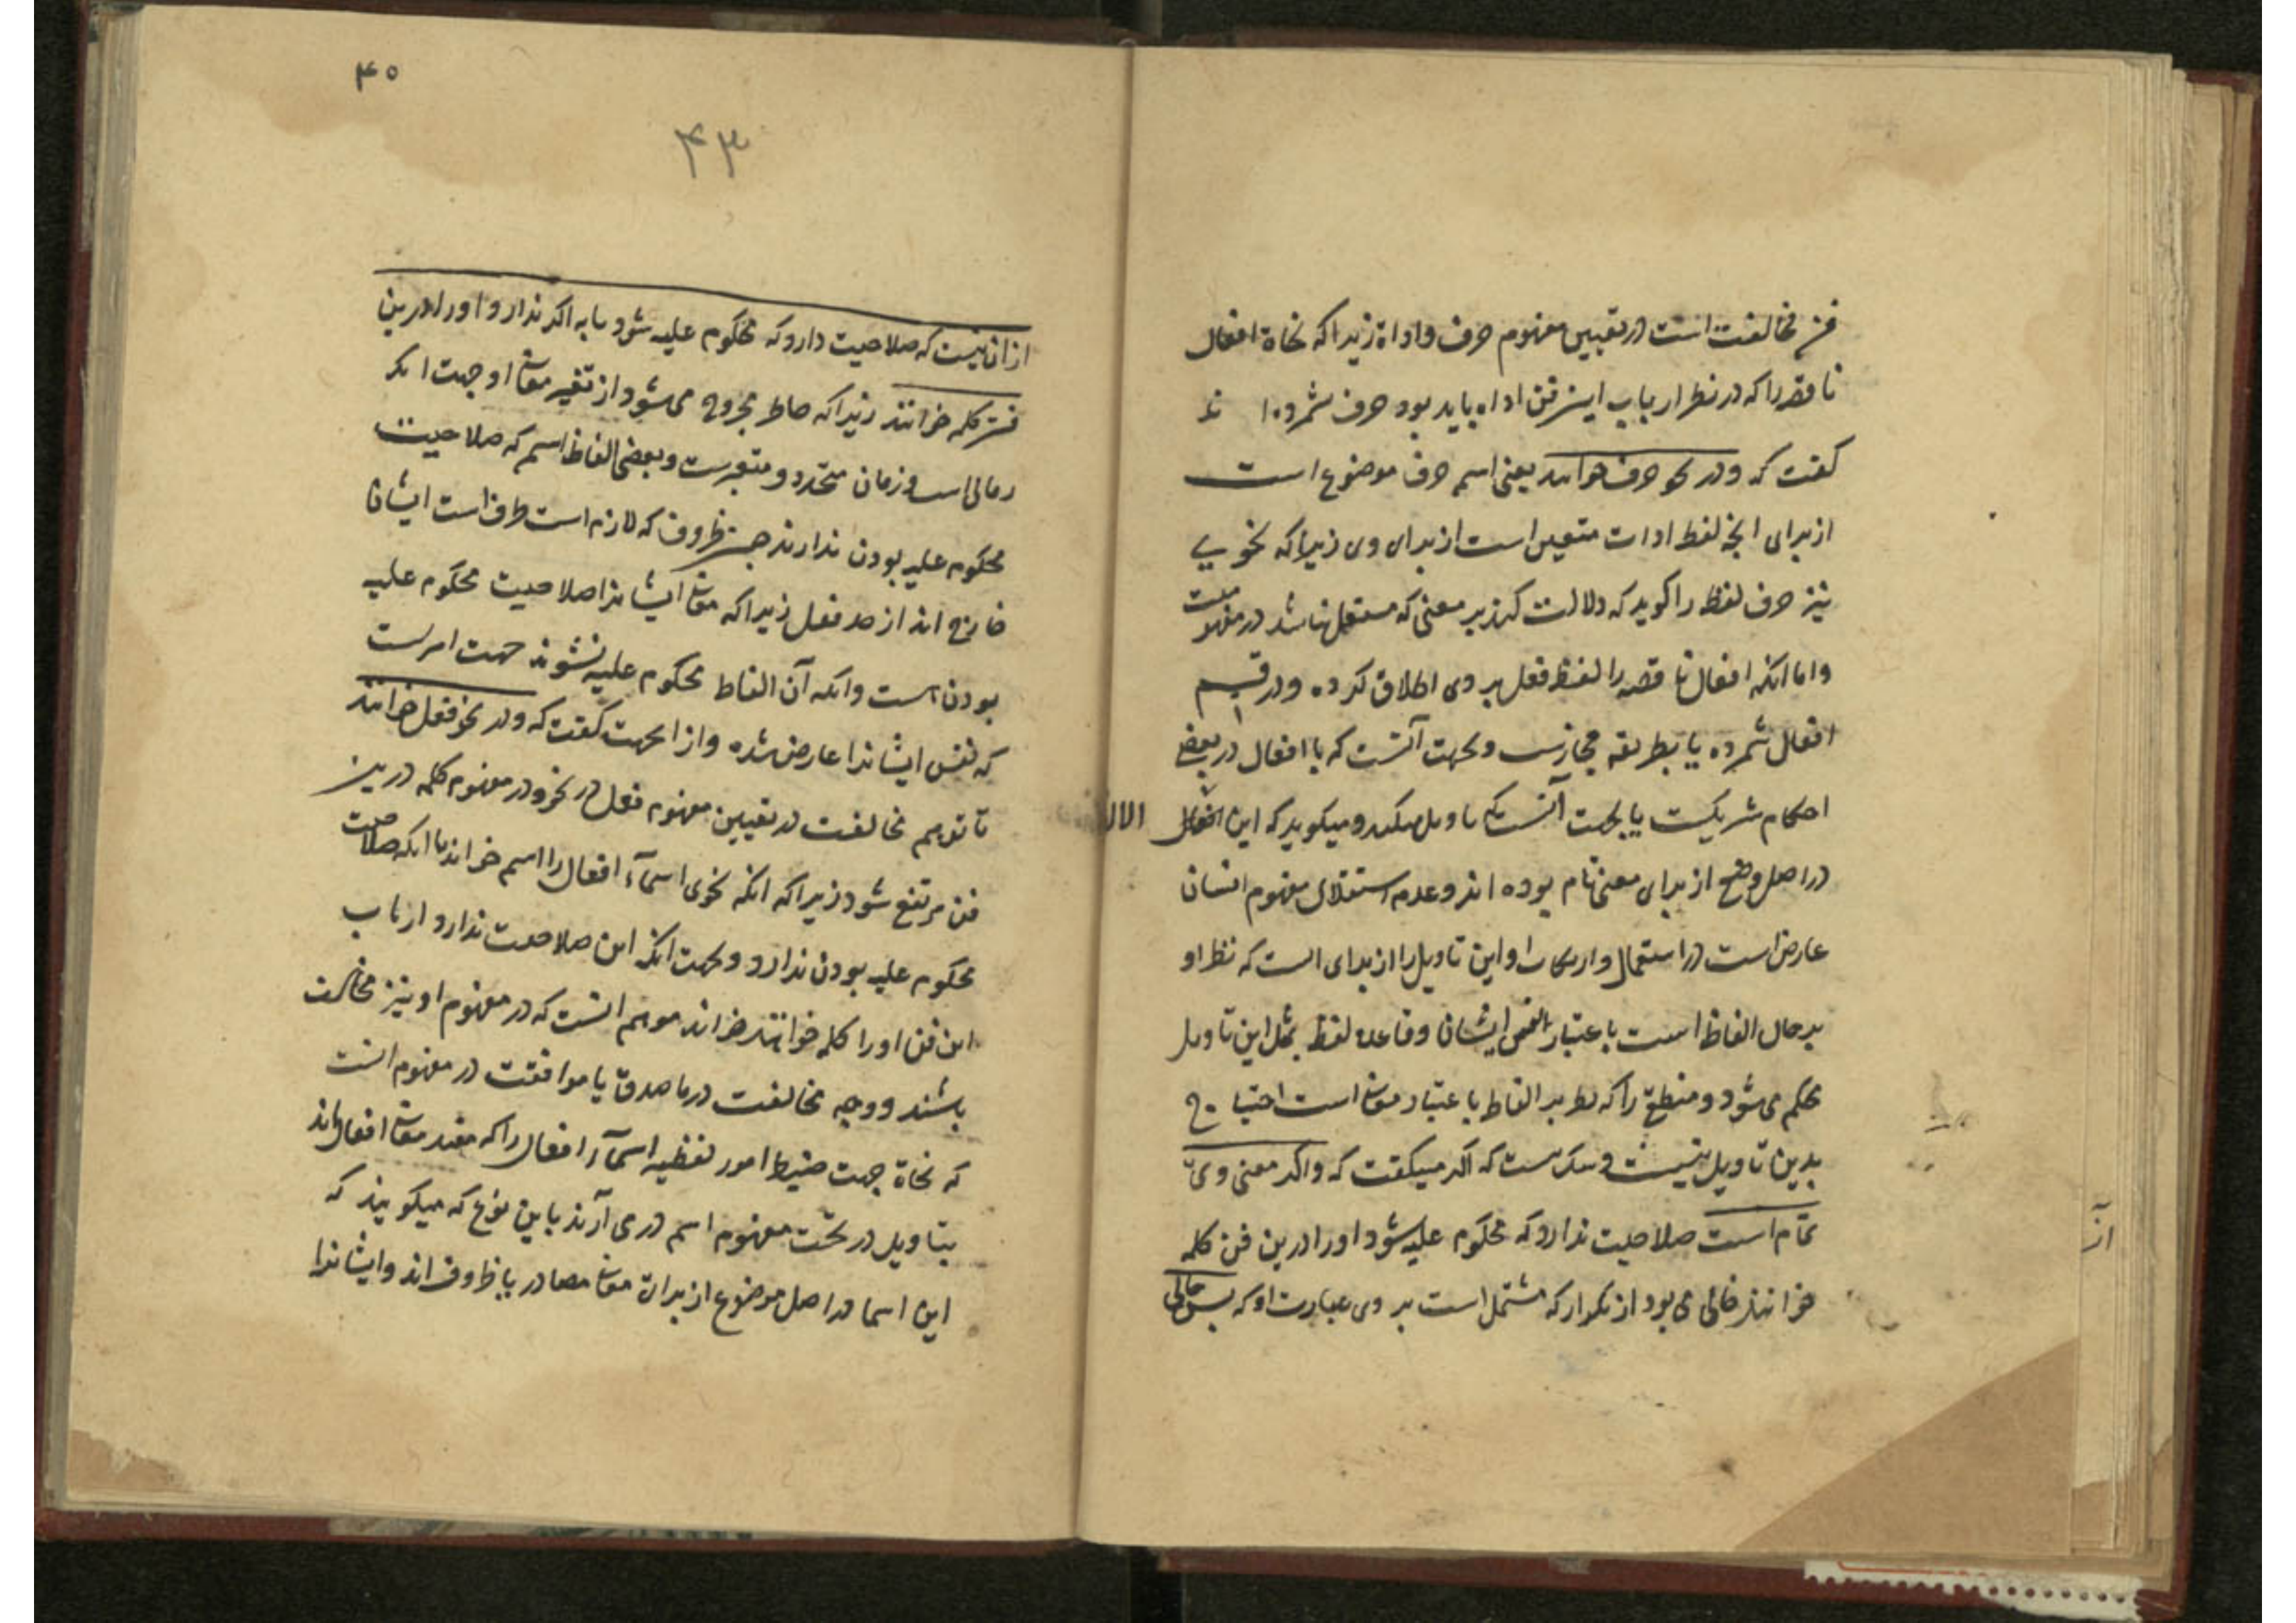 فن مخالفت است در تعیین مفهوم حرف و اداة زیراکه نحاة افعال
ناقصه را که در نظر ارباب این فن اداه باید بود حرف شمرده ا ند
کفت که و در نحو حرف خوانند یعنی اسم حرف موضوع است
از برای انچه لفظ ادات متعین است از برای وی زیراکه نحویی
نیز حرف لفظ را کوید که دلالت کند بر معنی که مستقل نباشد در مفهومیت
و اما انکه افعال ناقصه را لفظ فعل بر وی اطلاق کرده و در قسم
افعال شمرده یا بطریقه مجازست و بجهت آنست که با افعال در بعضی
احکام شریکست یا بجهت آنست که تاویل میکند و میکوید که این افعال
در اصل وضع از برای معنی تام بوده اند و عدم استقلال مفهوم ایشان
عارض است در استعمال و این تاویل را از برای است که نظر او
بر حال الفاظ است باعتبار انفس ایشان و قاعده لفظ بمثل این تاویل
محکم می شود و منطقی را که نظر بر الفاظ باعتبار معانی است احتیاج
بدین تاویل نیست و شک نیست که اکر میکفت که و اکر معنی وی
تمام است صلاحیت ندارد که محکوم علیه شود او را درین فن کلمه
خوانند خالی می بود از تکرار که مشتمل است بر وی عبارت او که پس خالی
۴۰
۴۳
از ان نیست که صلاحیت دارد که محکوم علیه شود یا نه اکر ندارد او را درین
فن کلمه خوانند زیراکه خاطر مجروح می شود از تغیر معانی او جهت انکر
زمانی است و زمان متجدد و متغیرست و بعضی الفاظ اسم که صلاحیت
محکوم علیه بودن ندارند چون ظروف که لازم است ظرف است ایشان
خارج اند از حد فعل زیراکه معانی ایشانرا صلاحیت محکوم علیه
بودن است و انکه آن الفاظ محکوم علیه نشوند جهت امریست
که نفس ایشانرا عارض شده و از انجهت کفت که و در نحو فعل خوانند
تا توهم مخالفت در تعیین مفهوم فعل در نحو و در مفهوم کلمه درین
فن مرتفع شود زیراکه انکه نحوی اسمآء افعال را اسم خواند با انکه صلاحیت
محکوم علیه بودن ندارد و بجهت انکه این صلاحیت ندارد ارباب
این فن او را کلمه خوانند خواند موهم انست که در مفهوم او نیز مخالف
باشند و وجه مخالفت در ما صدق با موافقت در مفهوم انست
که نحاة جهت ضبط امور لفظیه اسمآء افعال را که مفید معانی افعال اند
بتاویل در تحت مفهوم اسم در می آرند باین نوع که میکویند که
این اسما در اصل موضوع از برای معانی مصادر یا ظروف اند و ایشانرا